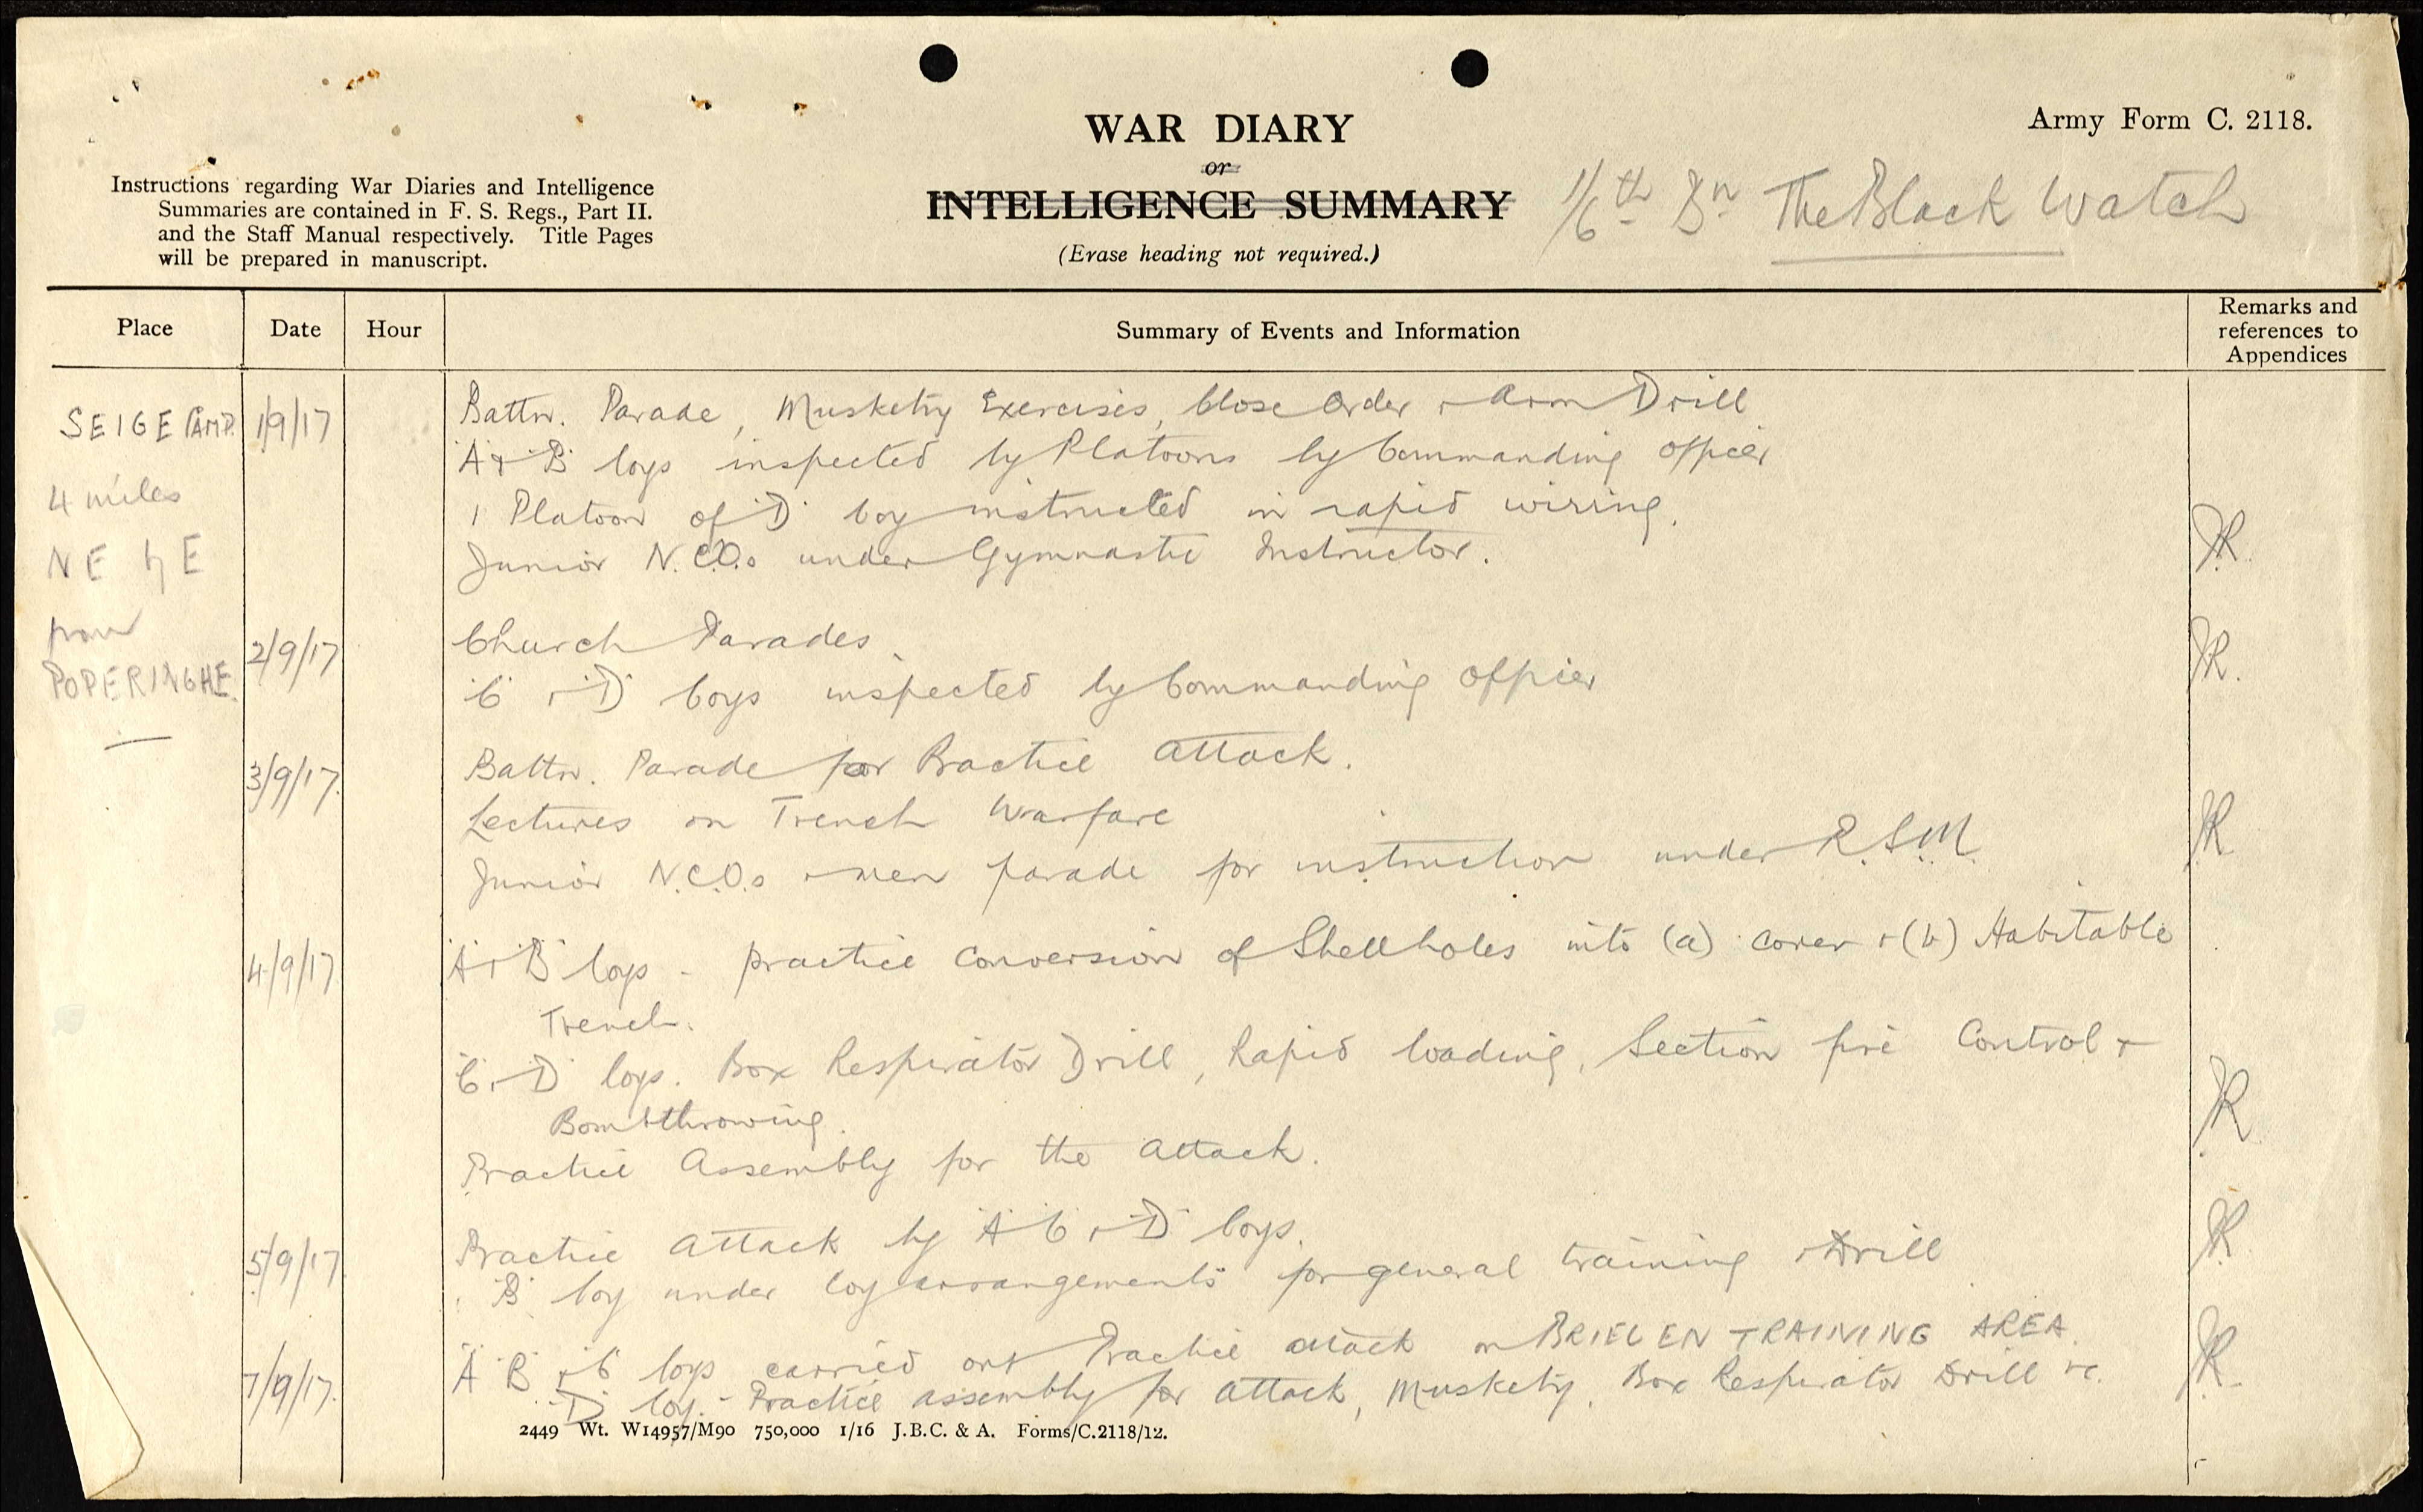 Army Form C. 2118.
WAR DIARY
or
INTELLIGENCE SUMMARY
(Erase heading not required.)
1/6th Bn The Black Watch
Instructions regarding War Diaries and Intelligence
Summaries are contained in F. S. Regs., Part II.
and the Staff Manual respectively. Title Pages
will be prepared in manuscript.
Place Date Hour Summary of Events and Information Remarks and references to Appendices
SEIGE CAMP. 1/9/17 Battn. Parade, Musketry Exercises, Close Order + Arm Drill
'A' + 'B' Coys inspected by Platoons by Commanding Officer
4 miles 1 Platoon of 'D' Coy instructed in rapid wiring.
NE by E Junior N.C.O.s under Gymnastic Instructor. JR.
from
POPERINGHE. 2/9/17 Church Parades.
'C' + 'D' Coys inspected by Commanding Officer JR.
3/9/17. Battn. Parade for Practice Attack.
Lectures on Trench Warfare
Junior N.C.O.s + men parade for instruction under R.S.M. JR
4/9/17 'A' + 'B' Coys - practice conversion of Shellholes into (a) cover + (b) Habitable
Trench.
'C' + 'D' Coys. Box Respirator Drill, Rapid loading, Section fire Control +
Bombthrowing.
Practice Assembly for the Attack. JR
5/9/17 Practice Attack by 'A' 'C' + 'D' Coys.
'B' Coy under Coy arrangements for general training + Drill JR
7/9/17. 'A' 'B' + 'C' Coys carried out Practice attack on BRIELEN TRAINING AREA.
'D' Coy. - Practice assembly for attack, Musketry, Box Respirator Drill &c. JR.
2449 Wt. W14957/M90 750,000 1/16 J.B.C. & A. Forms/C.2118/12.